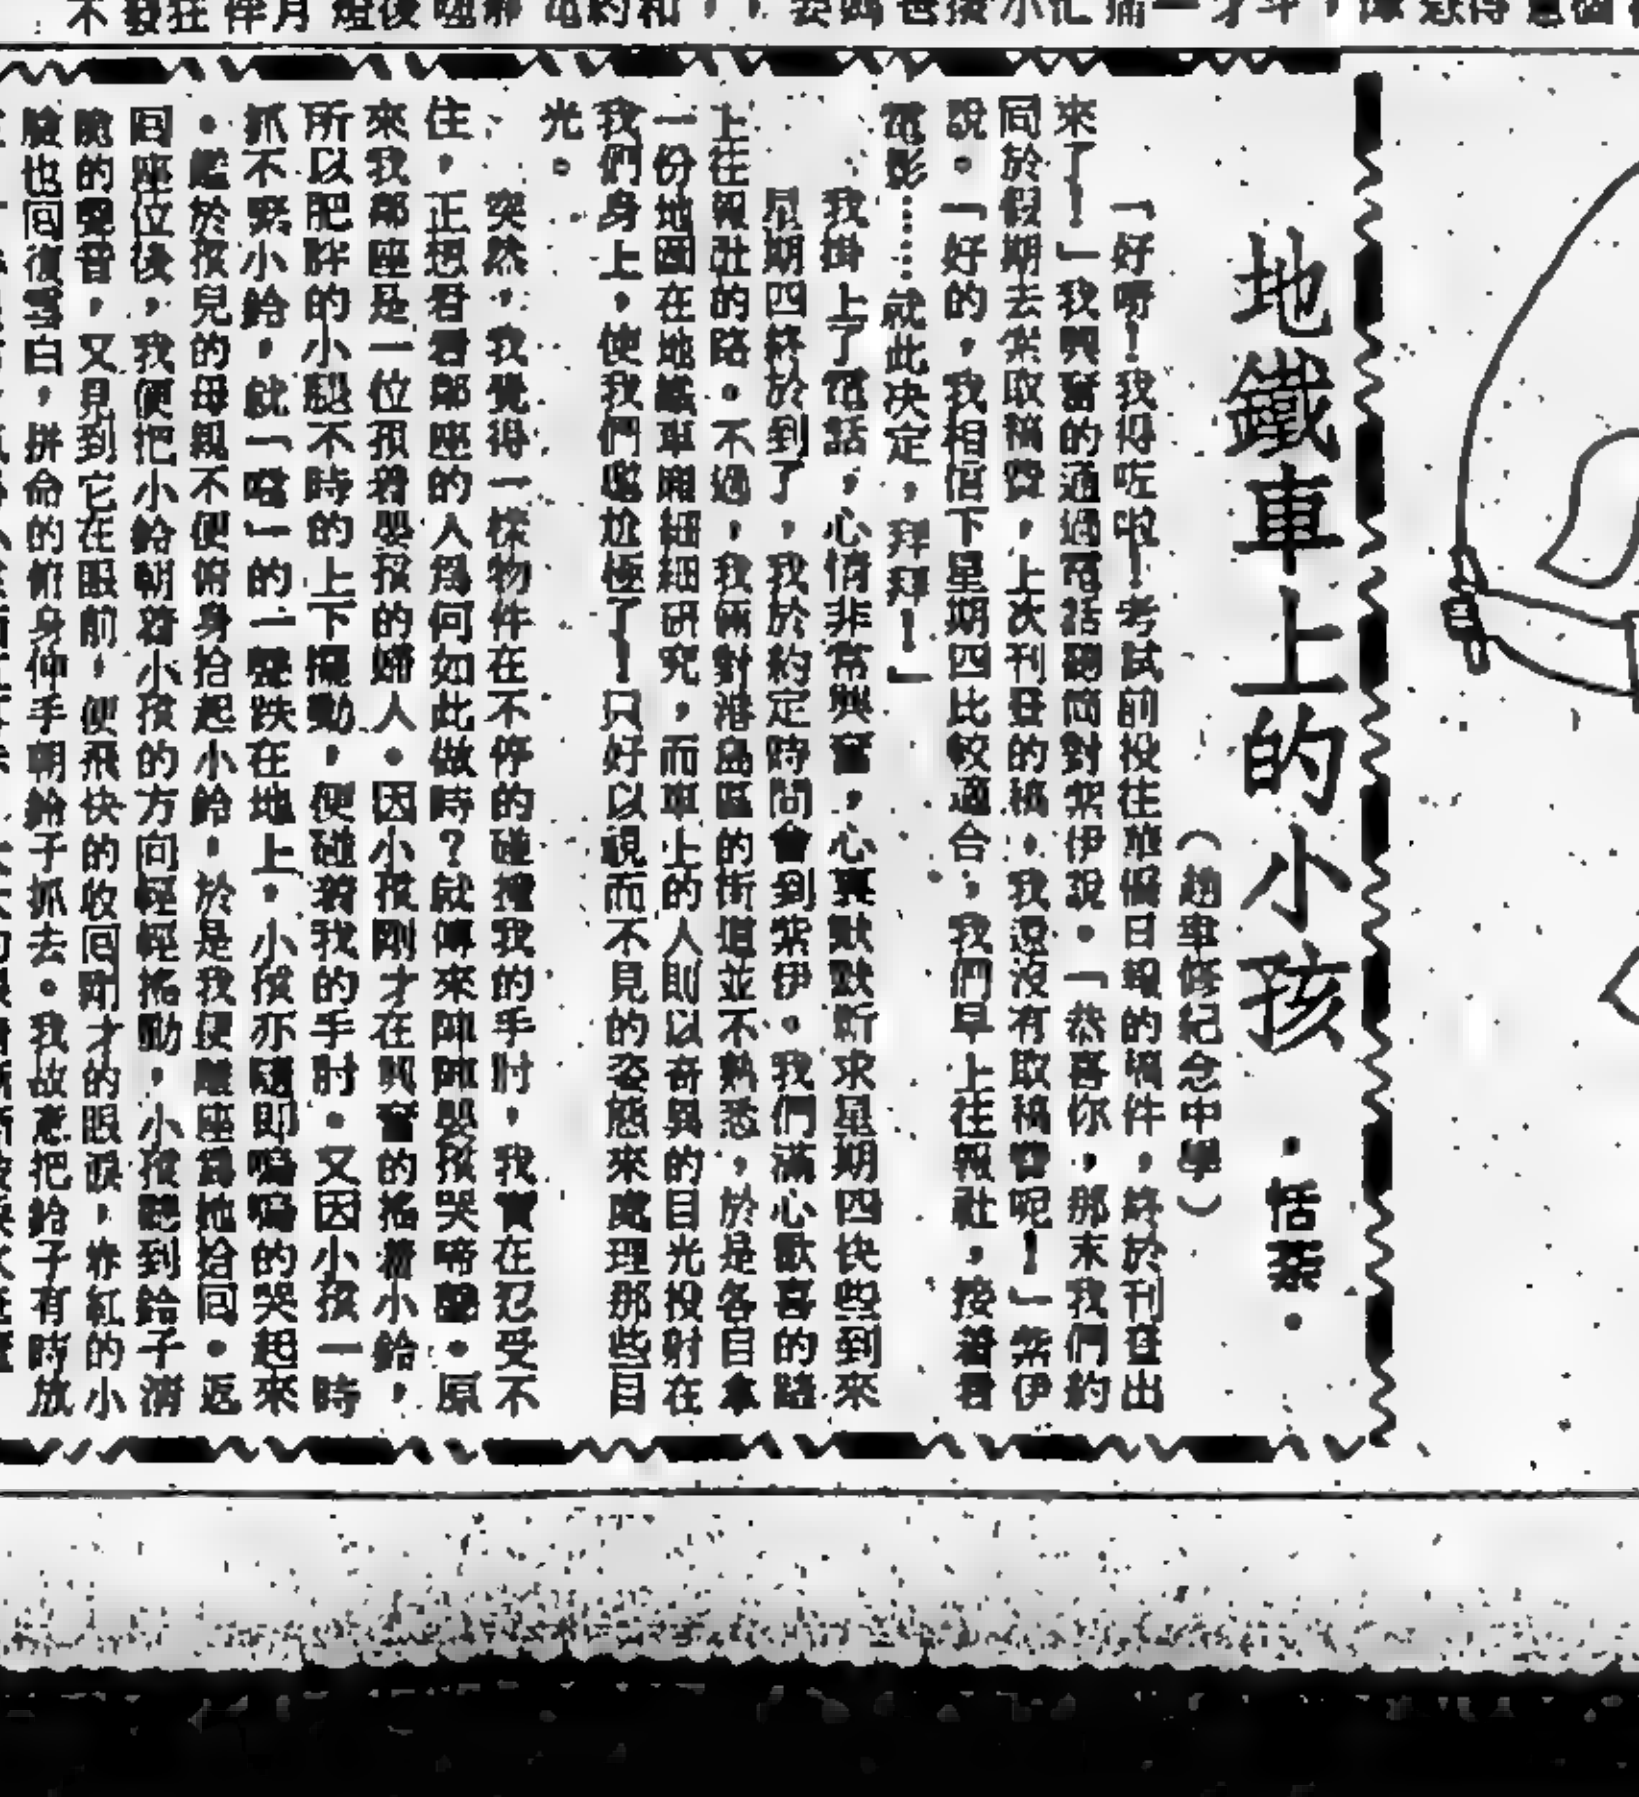 地鐵車上的小孩
・恬燊・
（趙聿修紀念中學）
「好嘢！我得咗啦！考試前投往華僑日報的稿件，終於刊登出
來了！」我興奮的通過電話筒對紫伊說。「恭喜你，那末我們約
同於假期去索取稿費，上次刊登的稿，我還沒有取稿費呢！」紫伊
說。「好的，我相信下星期四比較適合，我們早上往報社，接着看
電影……就此决定，拜拜！」
我掛上了電話，心情非常興奮，心裏默默祈求星期四快些到來
星期四終於到了，我於約定時間會到紫伊。我們滿心歡喜的踏
上往報社的路。不過，我倆對港島區的街道並不熟悉，於是各自拿
一份地圖在地鐵車廂細細研究，而車上的人則以奇異的目光投射在
我們身上，使我們尷尬極了！只好以視而不見的姿態來處理那些目
光。
突然，我覺得一樣物件在不停的碰撞我的手肘，我實在忍受不
住，正想看看鄰座的人爲何如此做時？就傳來陣陣嬰孩哭啼聲。原
來我鄰座是一位孭着嬰孩的婦人。因小孩剛才在興奮的搖着小鈴，
所以肥胖的小腿不時的上下擺動，便碰着我的手肘。又因小孩一時
抓不緊小鈴，就「噹」的一聲跌在地上，小孩亦隨即嗚嗚的哭起來
。鑑於孩兒的母親不便俯身拾起小鈴，於是我便離座爲她拾囘。返
囘座位後，我便把小鈴朝着小孩的方向輕輕搖動，小孩聽到鈴子清
脆的聲音，又見到它在眼前，便飛快的收囘剛才的眼淚，昨紅的小
臉也囘復雪白，拼命的俯身伸手朝鈴子抓去。我故意把鈴子有時放